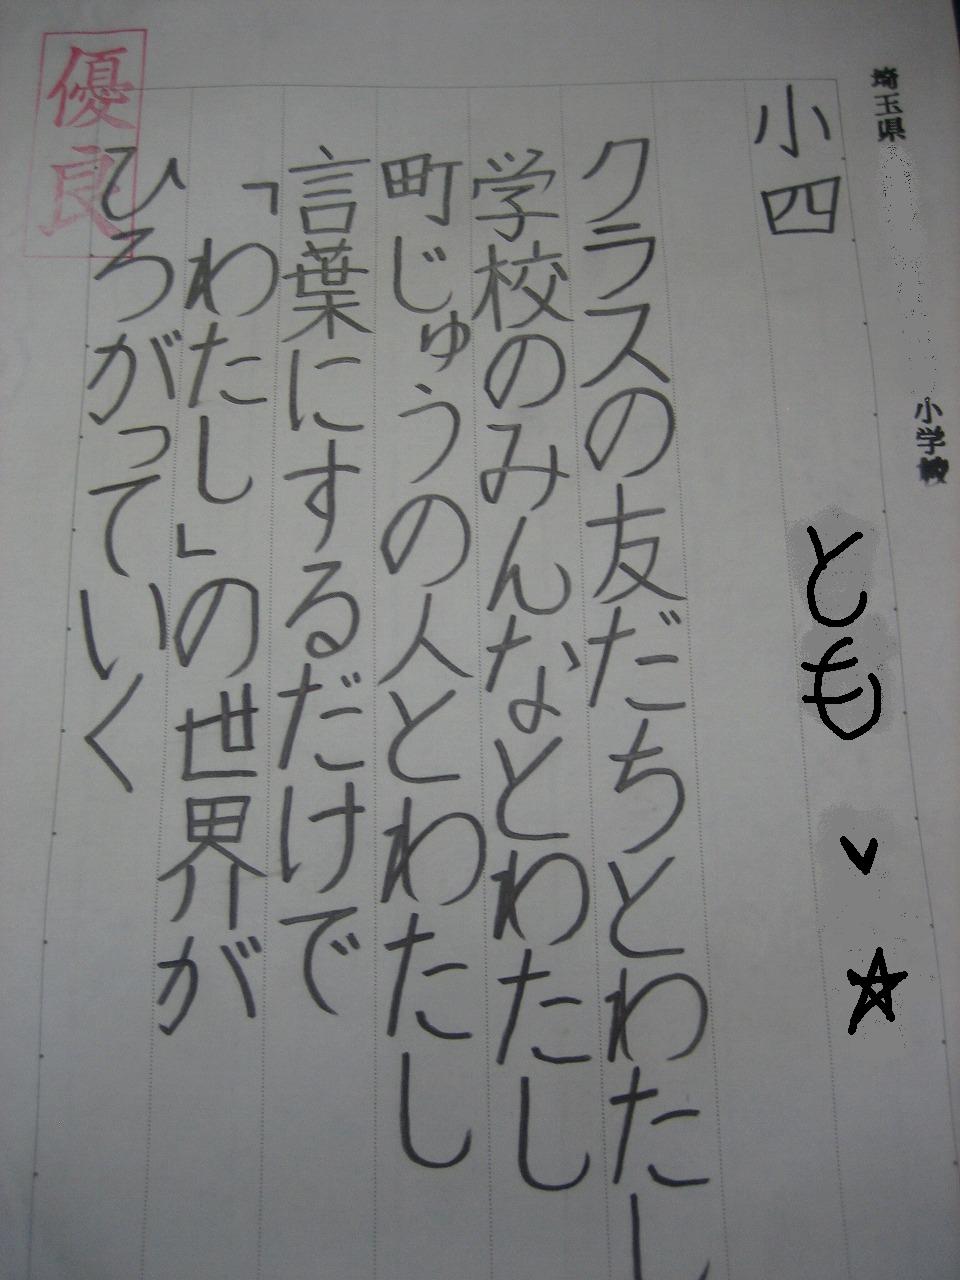 埼玉県
小学校
小四
とも
クラスの友だちとわたし
学校のみんなとわたし
町じゅうの人とわたし
言葉にするだけで
「わたし」の世界が
ひろがっていく
優良